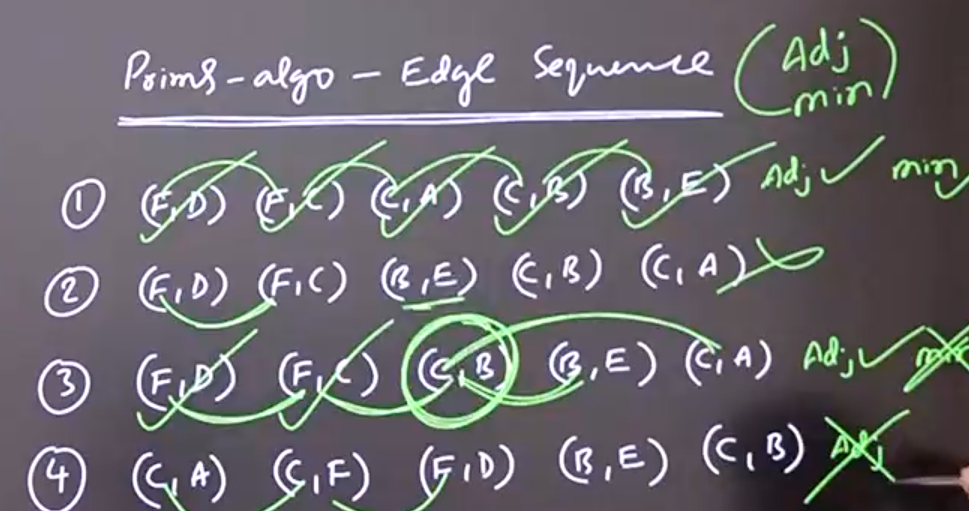 Prims-algo - Edge Sequence (Adj min)
① (F,D) (F,C) (C,A) (C,B) (B,E) Adj ✓ min ✓
② (F,D) (F,C) (B,E) (C,B) (C,A)
③ (F,D) (F,C) (C,B) (B,E) (C,A) Adj ✓ min
④ (C,A) (C,F) (F,D) (B,E) (C,B) Adj